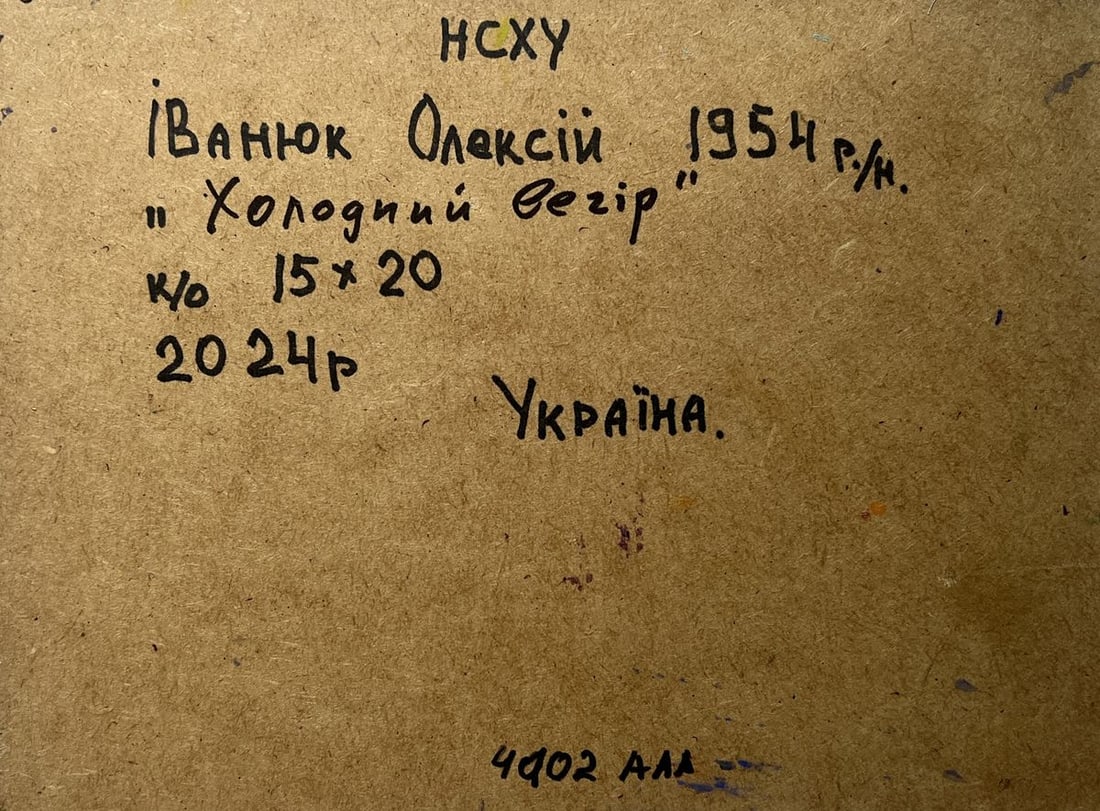 НСХУ
Іванюк Олексій 1954 р./н.
„Холодний вечір"
к/о 15 х 20
2024р
Україна.